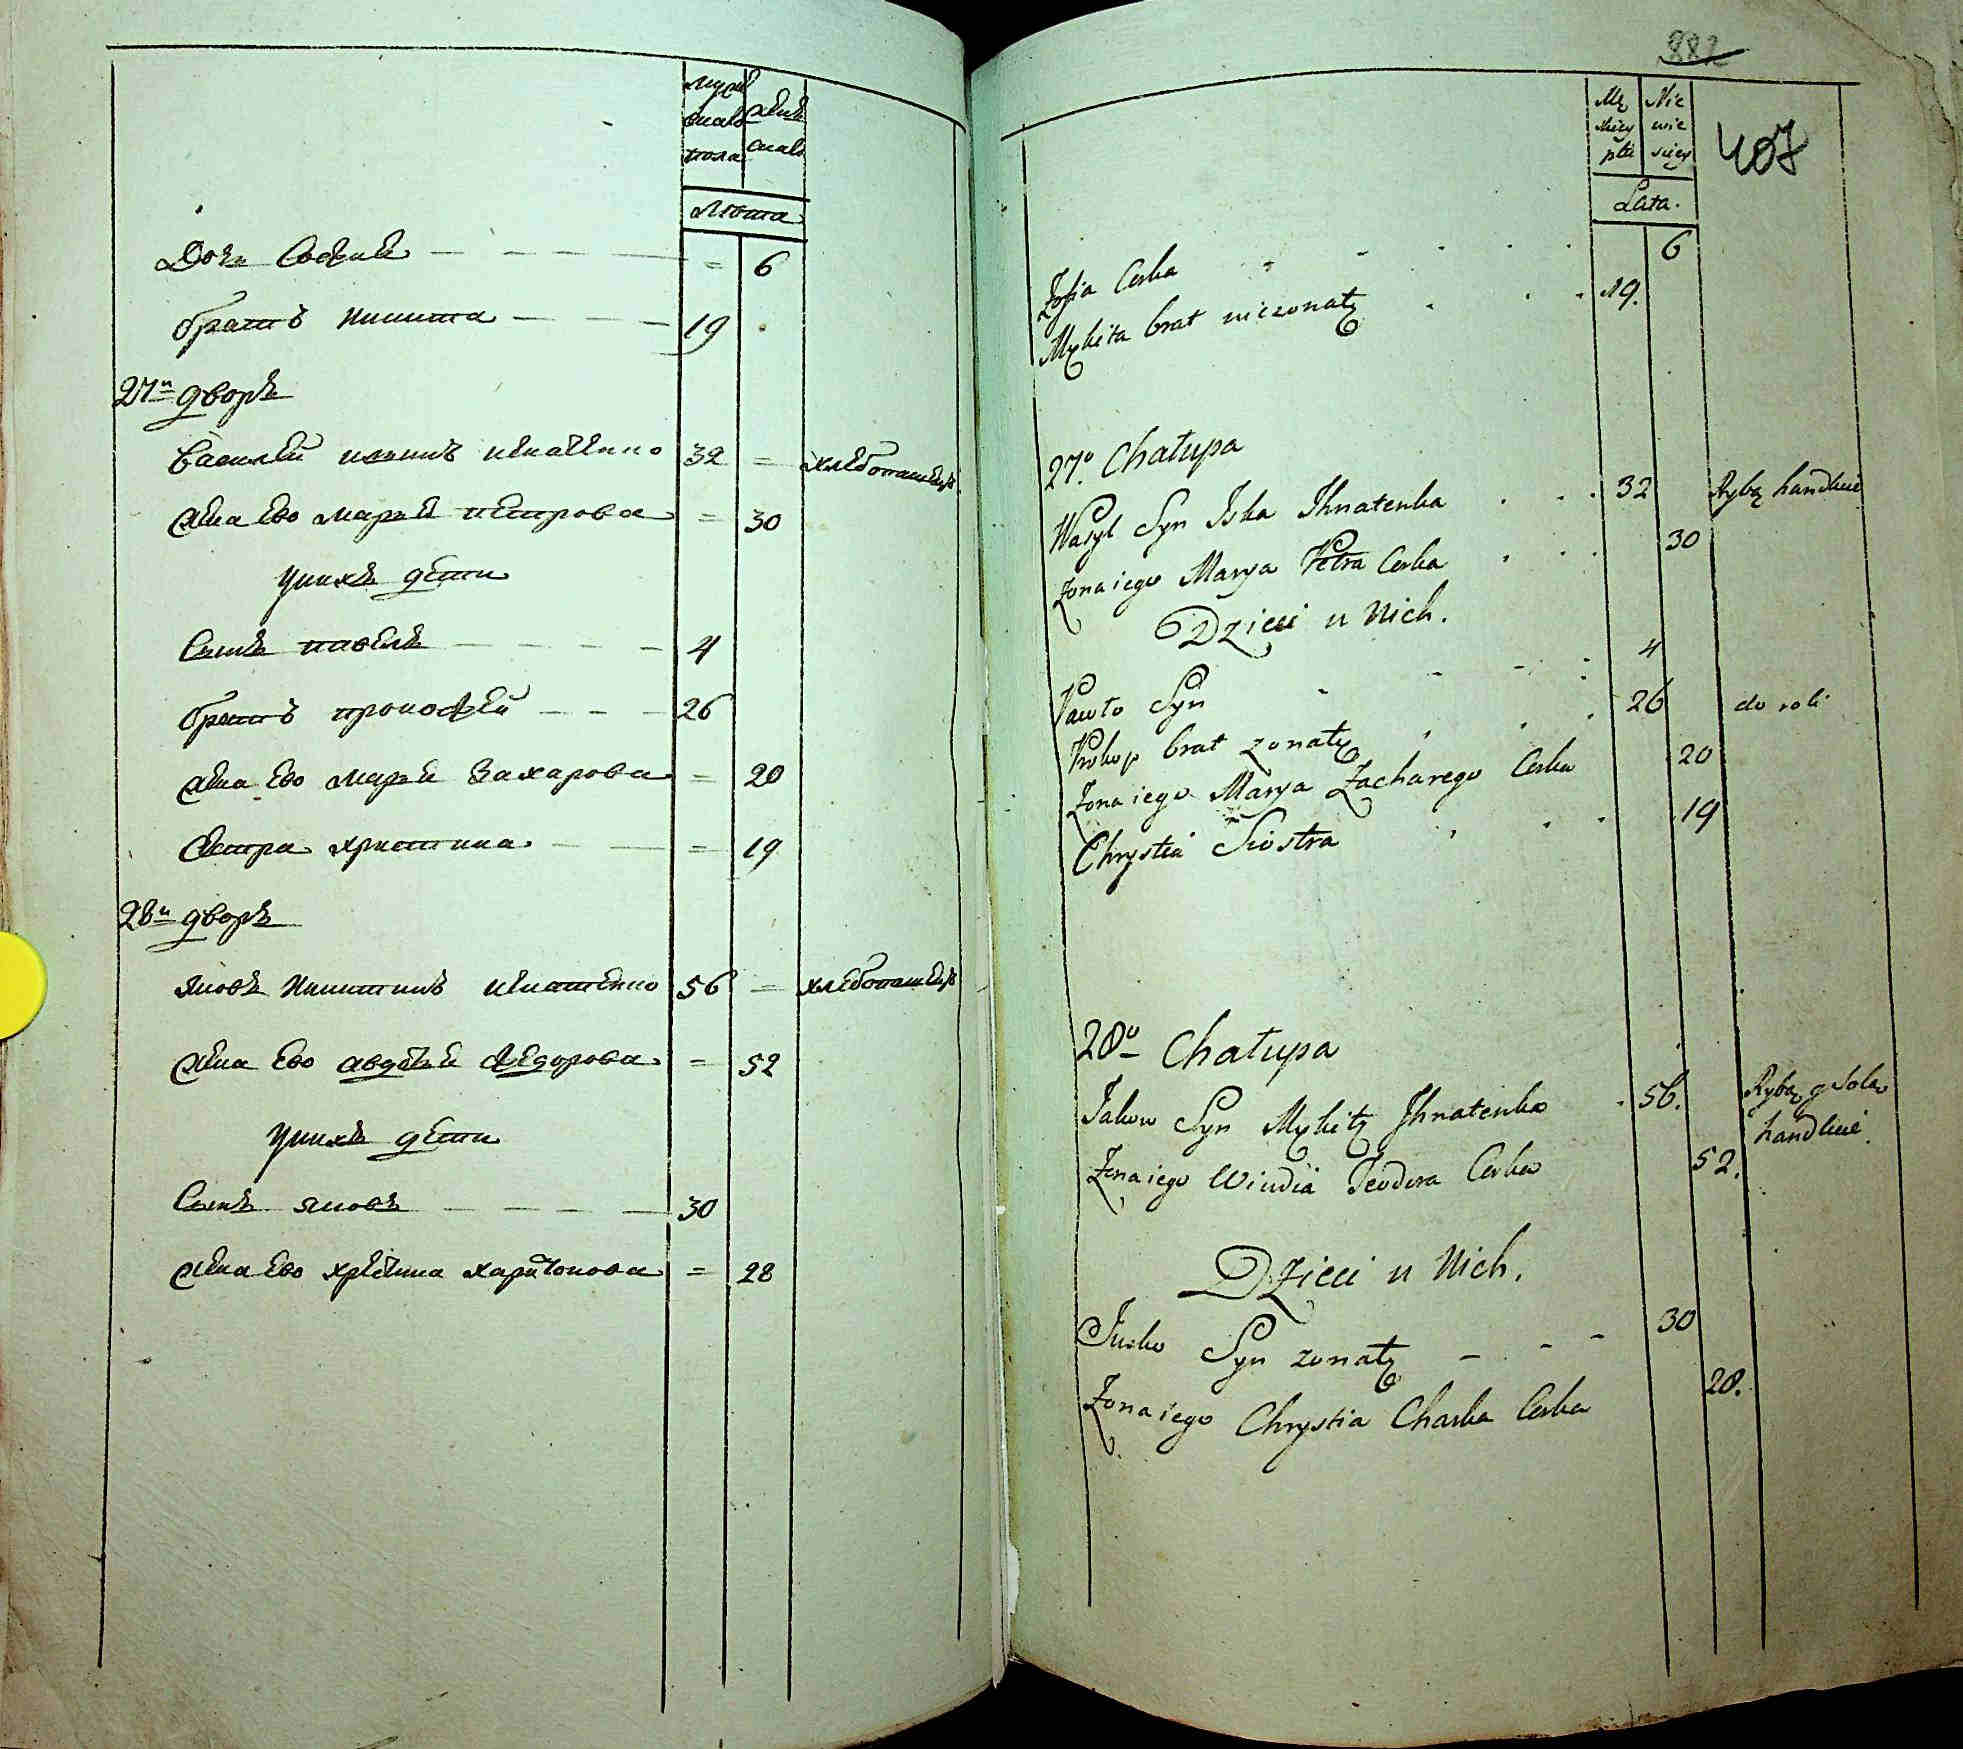 мужеска пола
женска
Лѣта
Дочь Софья — — — — = 6
братъ никита — — — 19
27й дворъ
Василей искинъ игнатенко 32 = хлебопашецъ
жена ево марья петрова = 30
унихъ дети
Сынъ павелъ — — — — 4
братъ прокофей — — — 26
жена ево марья Захарова = 20
Сестра христина — — = 19
28й дворъ
яковъ никитинъ игнатенко 56 = хлебопашецъ
жена ево авдотья Федорова = 52
унихъ дети
Сынъ яковъ — — — — 30
жена ево христина харитонова = 28
882
407
Męskiey płci
Niewieściey
Lata.
Zofia Corka 6
Mykita brat niezonaty 19.
27.o Chałupa
Wasyl Syn Iska Ihnatenka 32 Rybą handluie
Zona iego Marya Petra Corka 30
Dzieci u Nich.
Pawło Syn 4
Prokop brat zonaty 26 do roli
Zona iego Marya Zacharego Corka 20
Chrystia Siostra 19
28o Chałupa
Jakow Syn Mykity Ihnatenko 56. Rybą y Solą
handluie
Zona iego Teodora Corka 52.
Dzieci u Nich.
Syn zonaty 30
Zona iego Chrystia Corka 28.